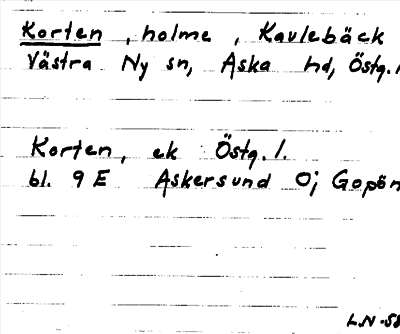 Korten, holme, Kavlebäck
Västra Ny sn, Aska hd, Östg.l
Korten, ek Östg. l.
bl. 9 E Askersund Ö; Gopön
L.N -58